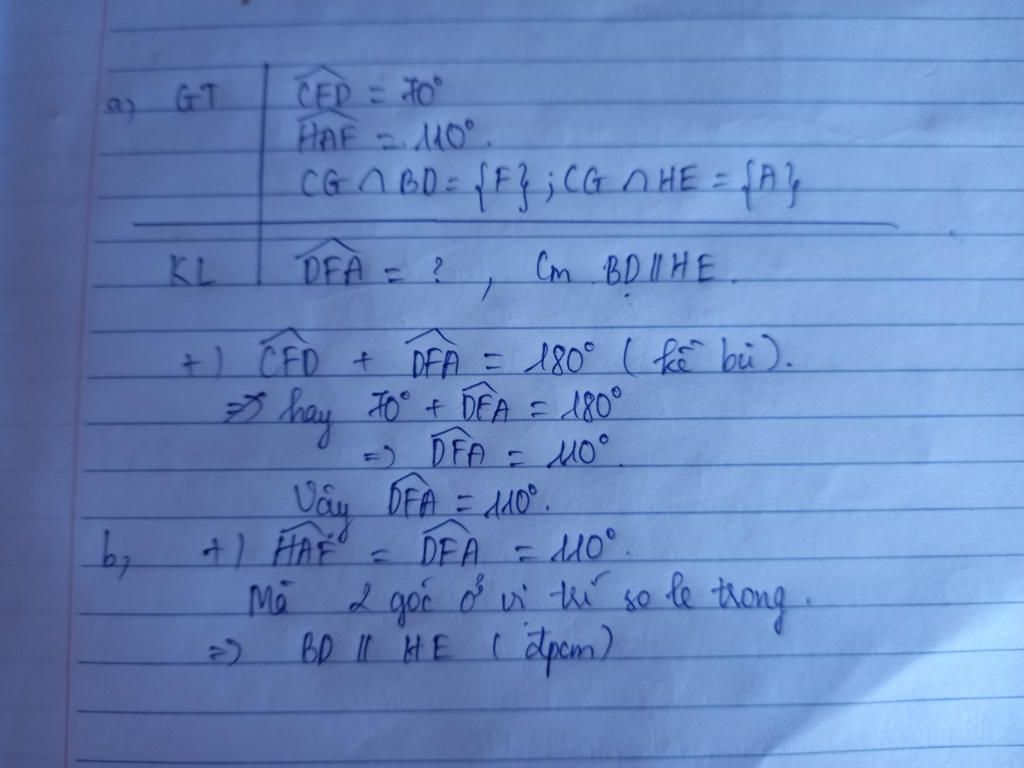 a) GT | \widehat{CFD} = 70°
\widehat{HAF} = 110°.
CG ∩ BD = {F} ; CG ∩ HE = {A}
KL | \widehat{DFA} = ? , Cm BD // HE.
+) \widehat{CFD} + \widehat{DFA} = 180° (kề bù).
=> hay 70° + \widehat{DFA} = 180°
=> \widehat{DFA} = 110°.
Vậy \widehat{DFA} = 110°.
b, +) \widehat{HAF} = \widehat{DFA} = 110°.
Mà 2 góc ở vị trí so le trong.
=> BD // HE (đpcm)